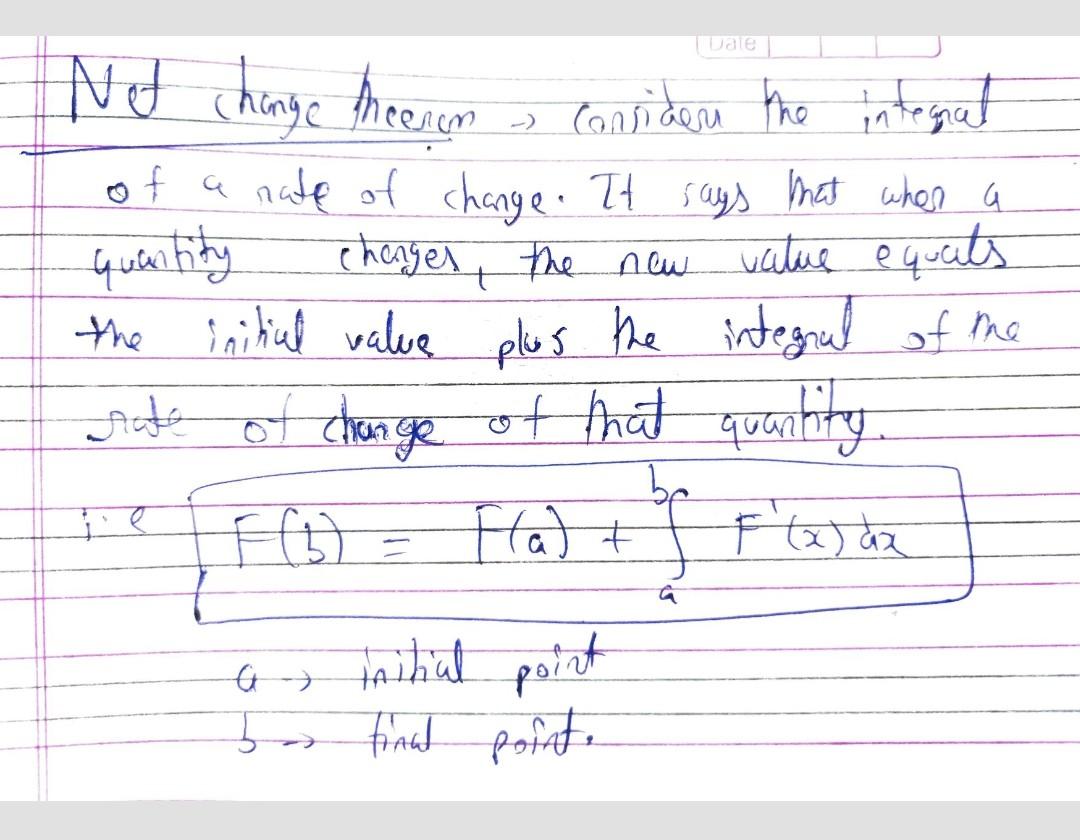 Date
Net change theorem → consider the integral
of a rate of change. It says that when a
quantity changes, the new value equals
the initial value plus the integral of the
rate of change of that quantity.
i.e F(b) = F(a) + ∫_a^b F'(x) dx
a → initial point
b → final point.